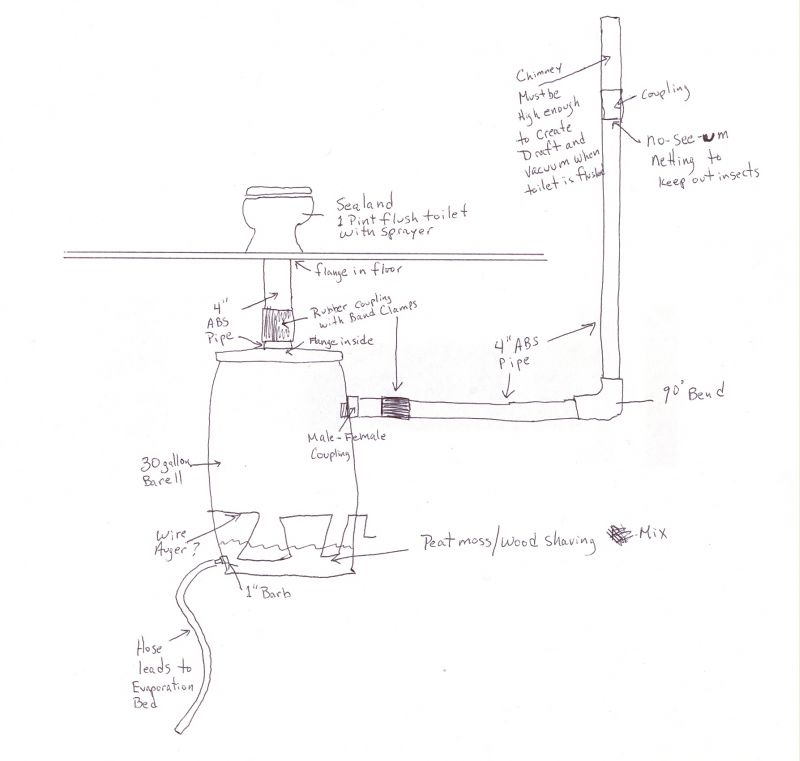 Chimney
Must be
High enough
to Create
Draft and
Vacuum when
toilet is flushed
Coupling
no-see-um
Netting to
keep out insects
Sealand
1 Pint flush toilet
with sprayer
flange in floor
4"
ABS
Pipe
Rubber Coupling
with Band Clamps
Flange inside
4" ABS
Pipe
90° Bend
Male-Female
Coupling
30 gallon
Barell
Wire
Auger?
Peat moss/wood shaving Mix
1" Barb
Hose
leads to
Evaporation
Bed